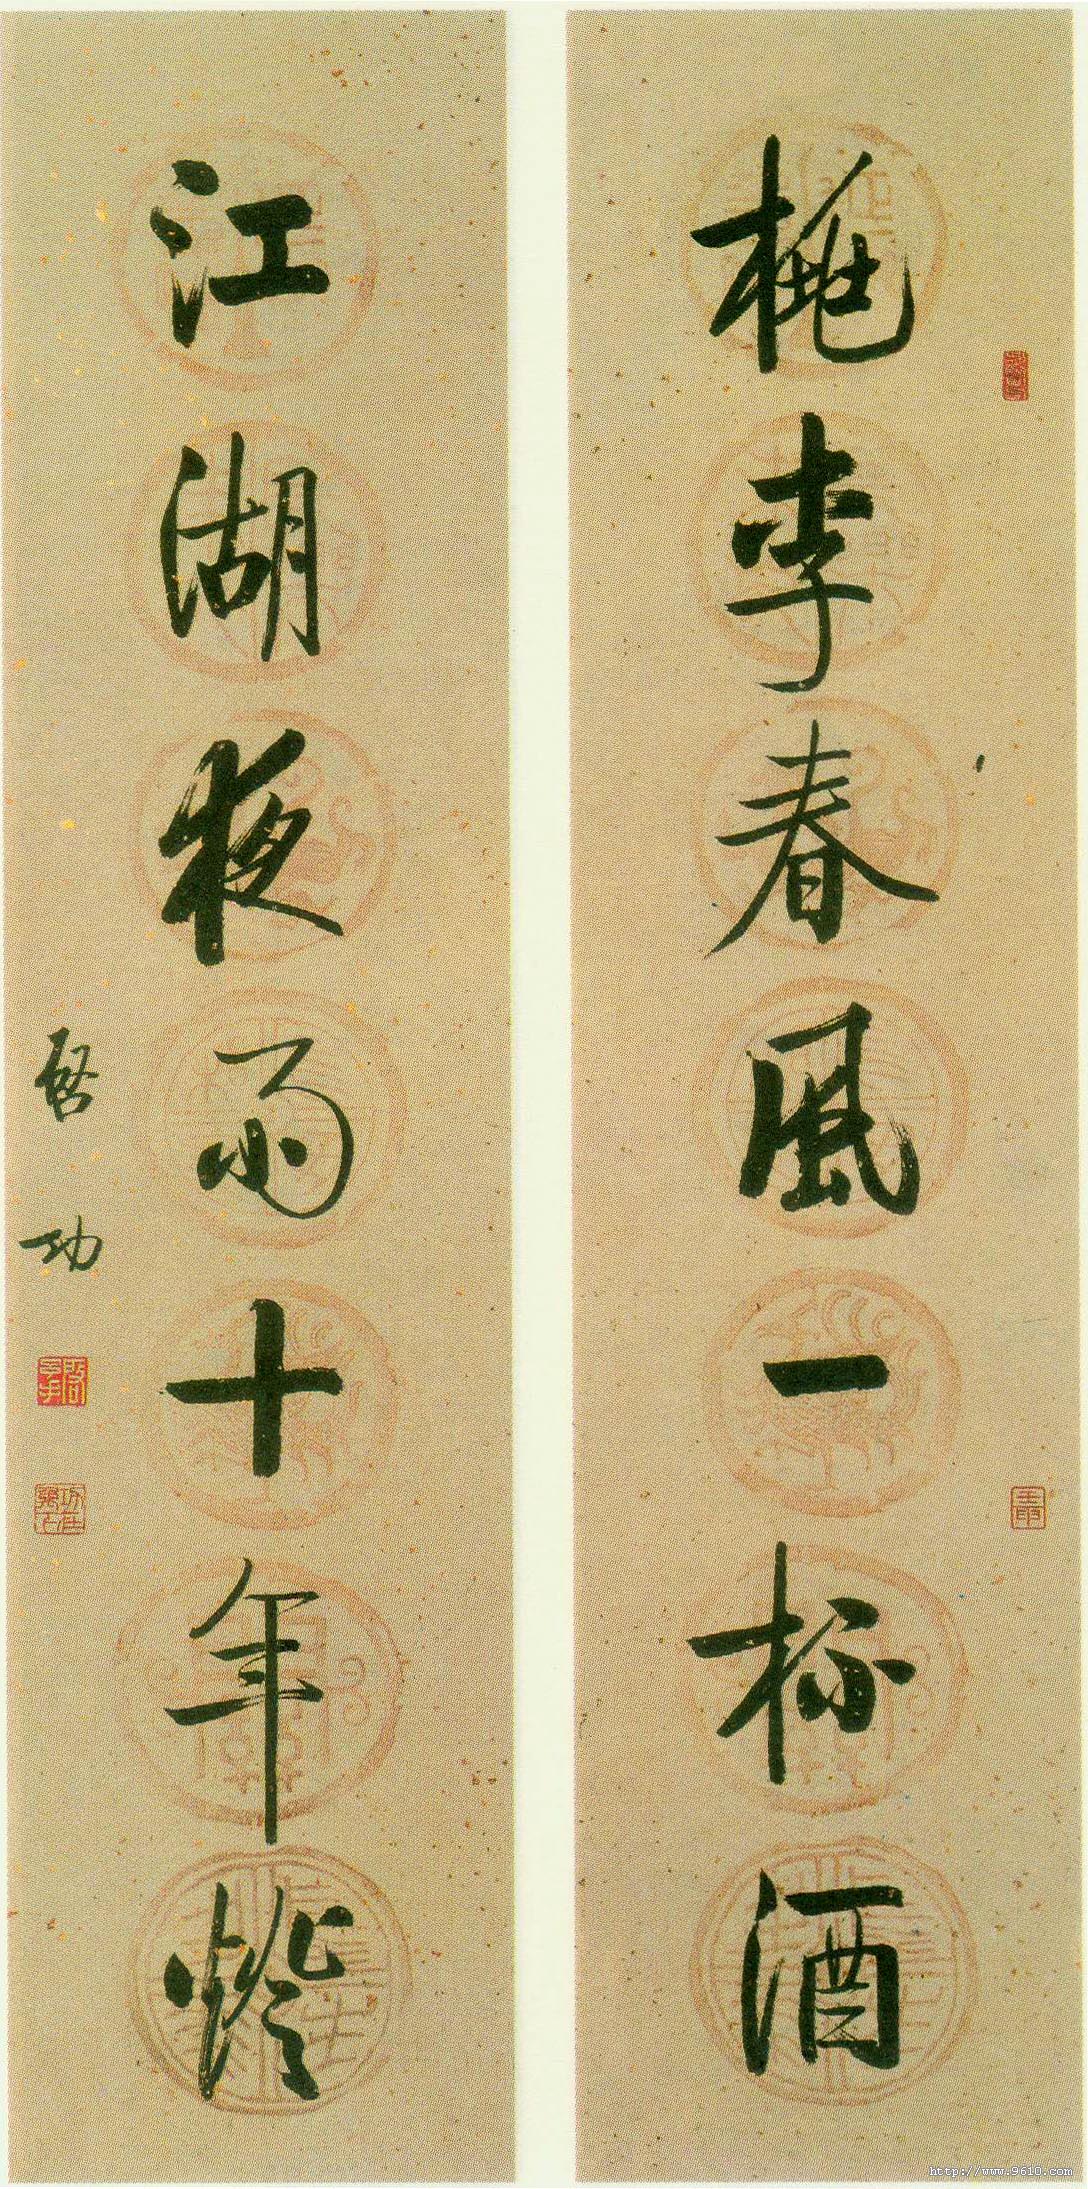 桃李春風一杯酒
江湖夜雨十年燈
启功
http://www.9610.com